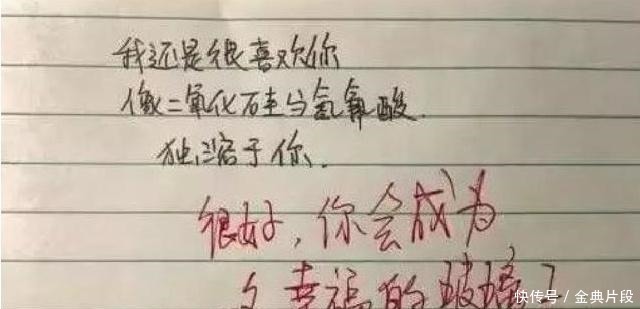 我还是很喜欢你
像二氧化硅与氢氟酸.
独溶于你.
很好，你会成为
幸福的玻璃
快传号／金典片段